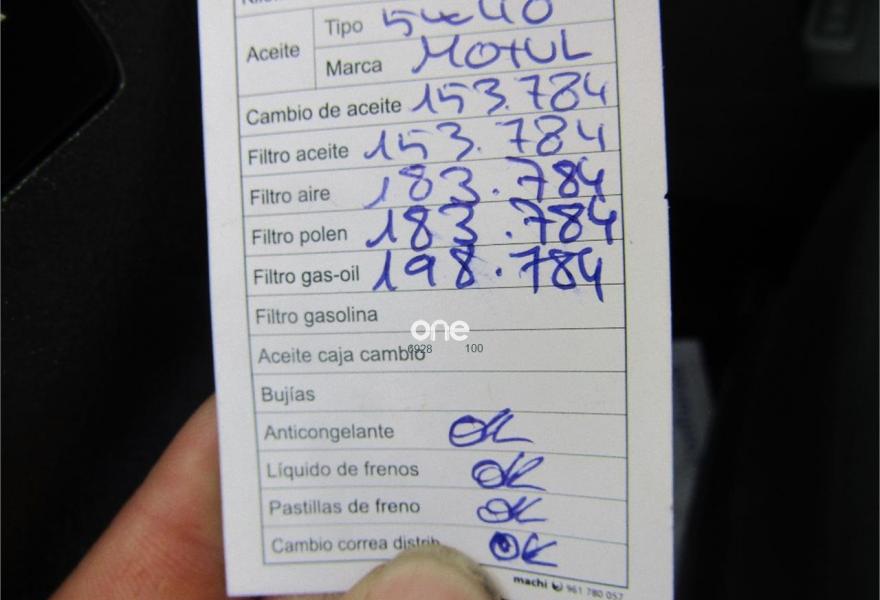 Aceite
Tipo 5w40
Marca MOTUL
Cambio de aceite 153.784
Filtro aceite 153.784
Filtro aire 183.784
Filtro polen 183.784
Filtro gas-oil 198.784
Filtro gasolina
one
Aceite caja cambio
6928 100
Bujías
Anticongelante OK
Líquido de frenos OK
Pastillas de freno OK
Cambio correa distrib OK
machi 961 780 057